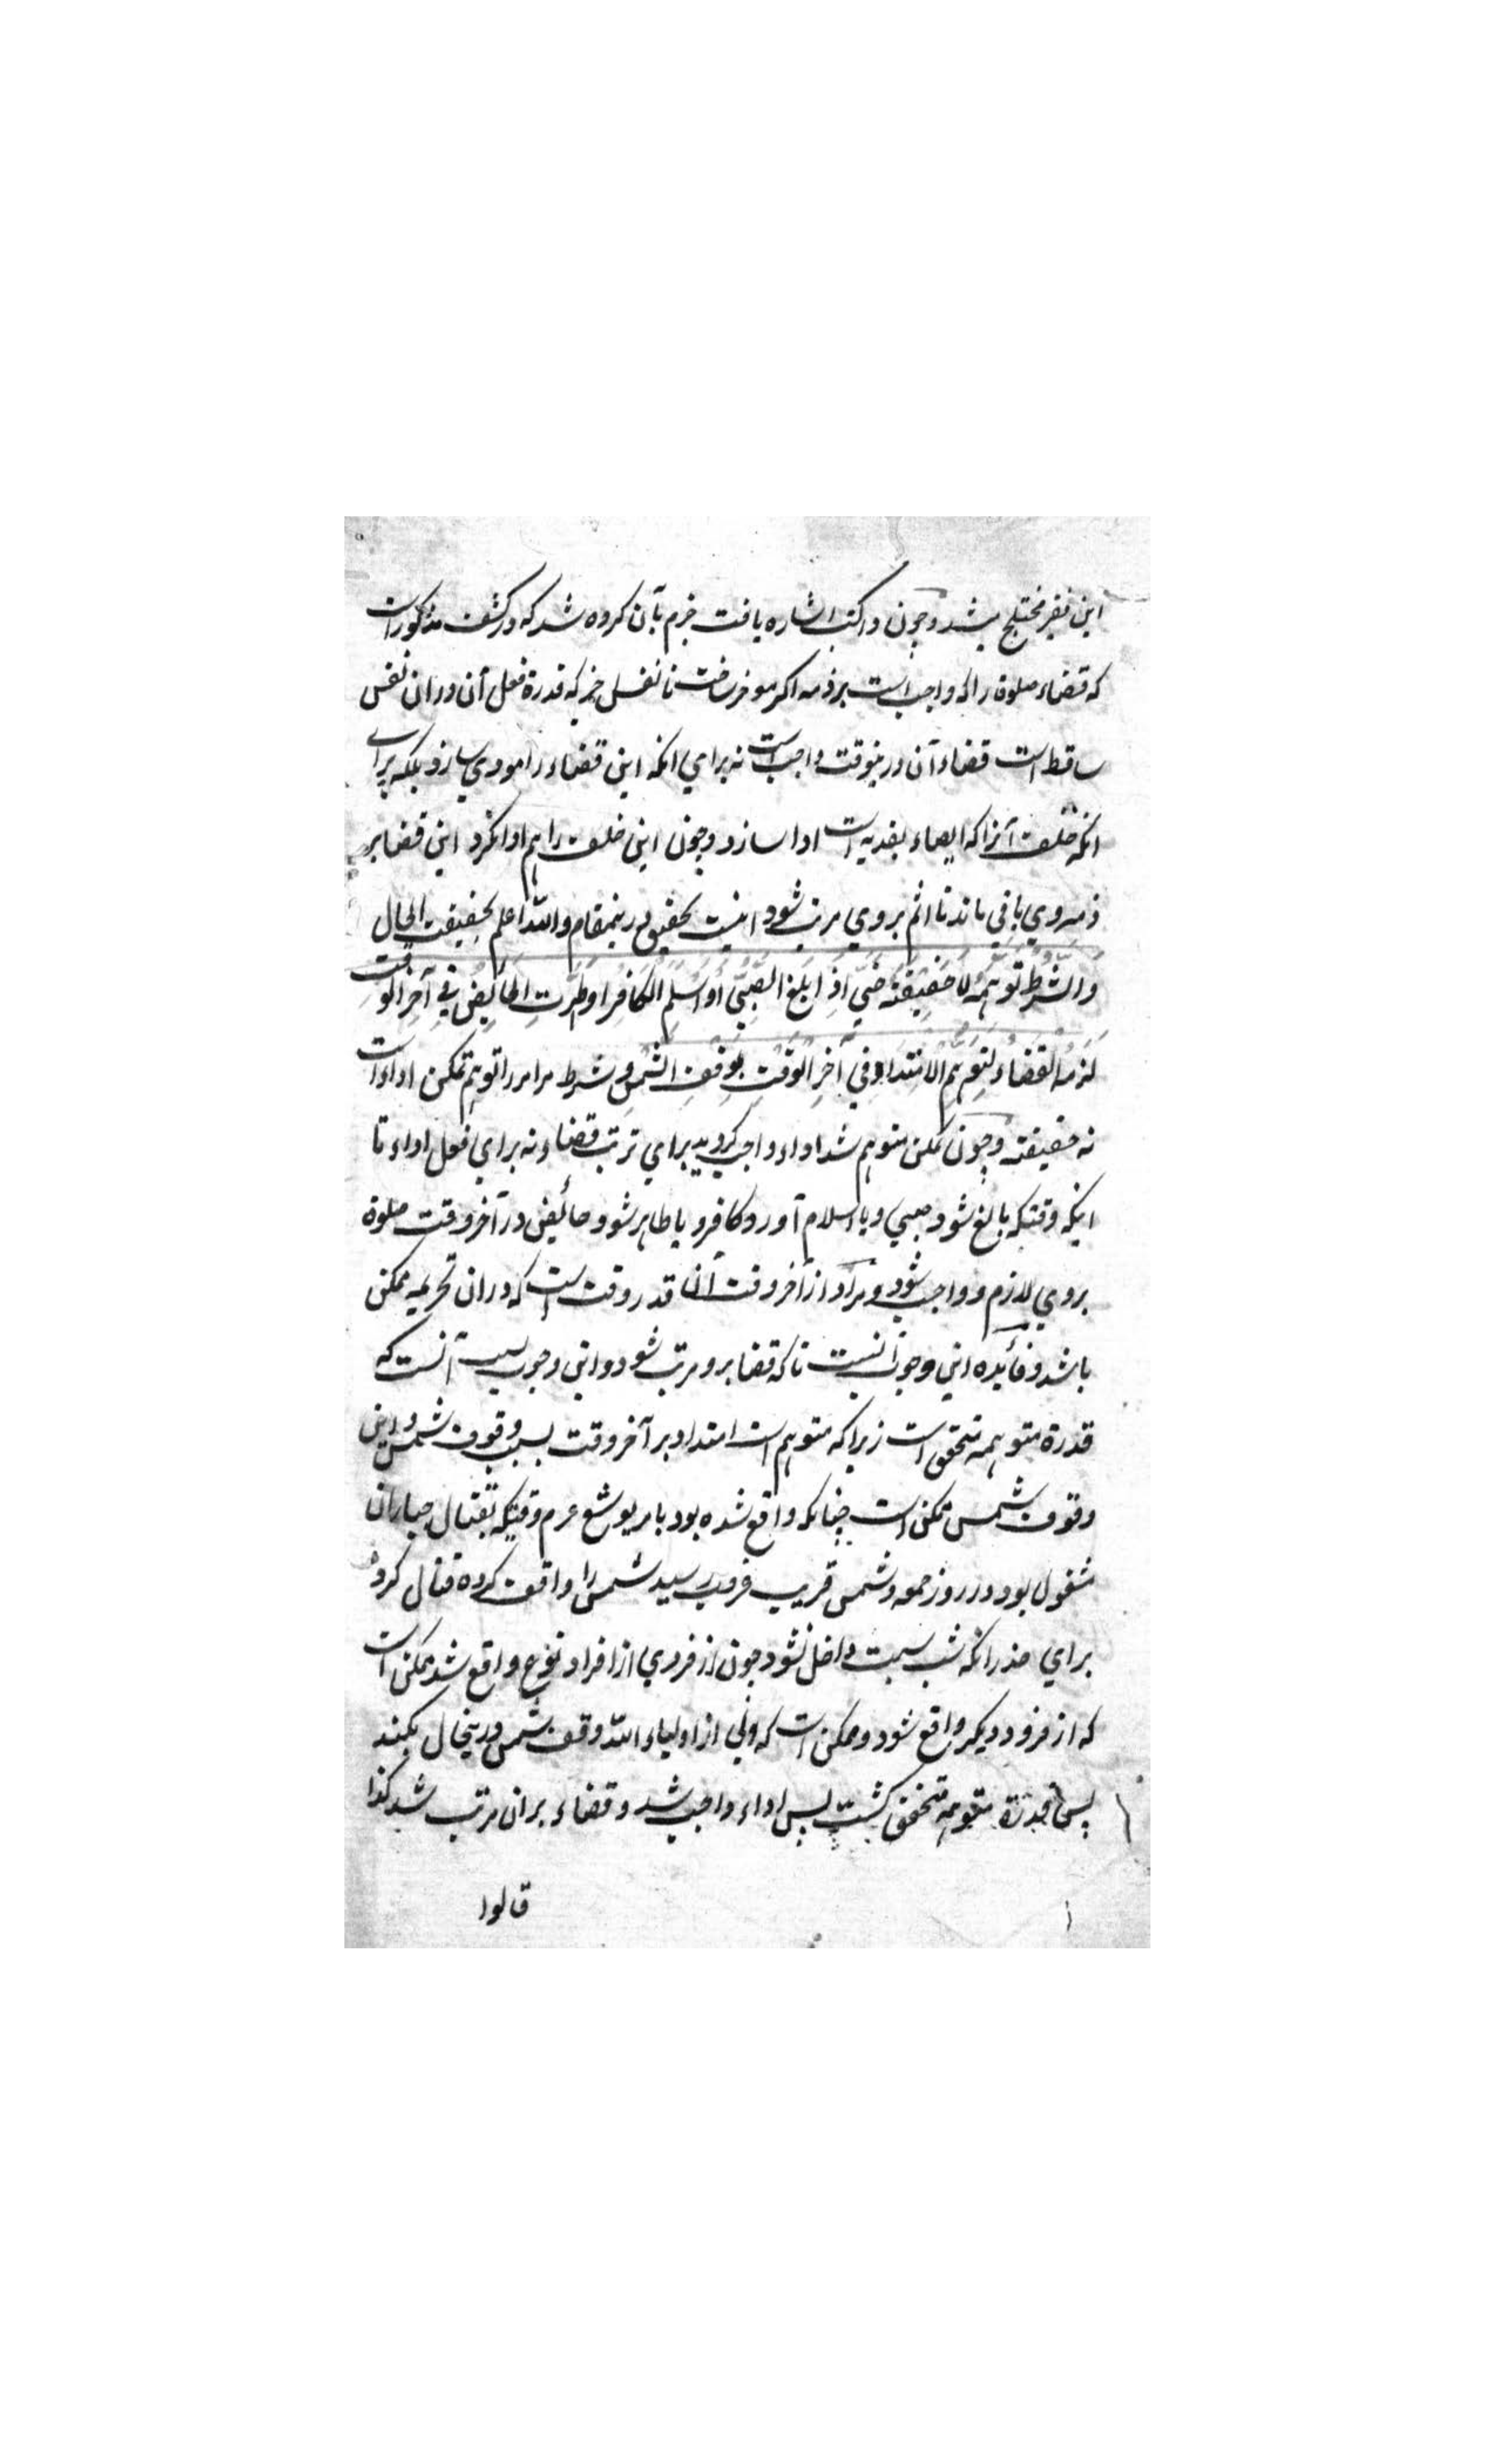 این فقیر مختلج میشد و چون در کتب اشاره یافت جزم بآن کرده شد که در کشف مذکور است
که قضاء صلوة را که واجب است بر ذمه اکر موخر ساخت تا نفس اخیر که قدرة فعل آن دران نفس
ساقط است قضاء آن درینوقت واجب است نه برای انکه این قضاء را مودی سازد بلکه برای
انکه خلف آنرا که ایصاء بفدیه است ادا سازد و چون این خلف را هم ادا نکرد این قضا بر
ذمه وی باقی ماند تا اثم بروی مرتب شود اینست تحقیق درینمقام والله اعلم بحقیقت الحال
وَالشَّرطُ تَوَهُّمُهُ لا حَقِیقَتُه حَتّی اِذا بَلَغَ الصَّبِیُّ اَو اَسْلَمَ الکَافِرُ اَو طَهُرَتِ الحَایِضُ فِی آخِرِ الوَقتِ
لَزِمَهُ القَضَاءُ لِتَوَهُّمِ الاِمْتِدَادِ فِی آخِرِ الوَقتِ بِوَقْفِ الشَّمْسِ و شرط مرامر را توهم تمکن اداء است
نه حقیقته و چون تمکن متوهم شد اداء واجب کردید برای ترتب قضاء نه برای فعل اداء تا
اینکه وقتیکه بالغ شود صبی و یا اسلام آورد کافر و یا طاهر شود حائیض در آخر وقت صلوة
بروی لازم و واجب شود و مراد از آخر وقت آن قدر وقت است که دران تحریمه ممکن
باشد و فائیده این وجوب آنست تا که قضا برو مرتب شود و این وجوب بسبب آنست که
قدرة متوهمه متحقق است زیرا که متوهم است امتداد بر آخر وقت بسبب وقوف شمس و این
وقوف شمس ممکن است چنانکه واقع شده بود بامر یوشع عرم وقتیکه بقتال جباران
مشغول بود در روز جمعه و شمس قریب غروب رسید شمس را واقف کرده قتال کرد
برای حذر انکه شب سبت داخل نشود چون از فردی از افراد نوع واقع شد ممکن است
که از فرد دیکر واقع شود و ممکن است که ولی از اولیاء الله وقف شمس درینحال بکند
پس قدرة متوهمه متحقق کشت پس اداء واجب شد و قضاء بران مرتب شد کذا
قالوا